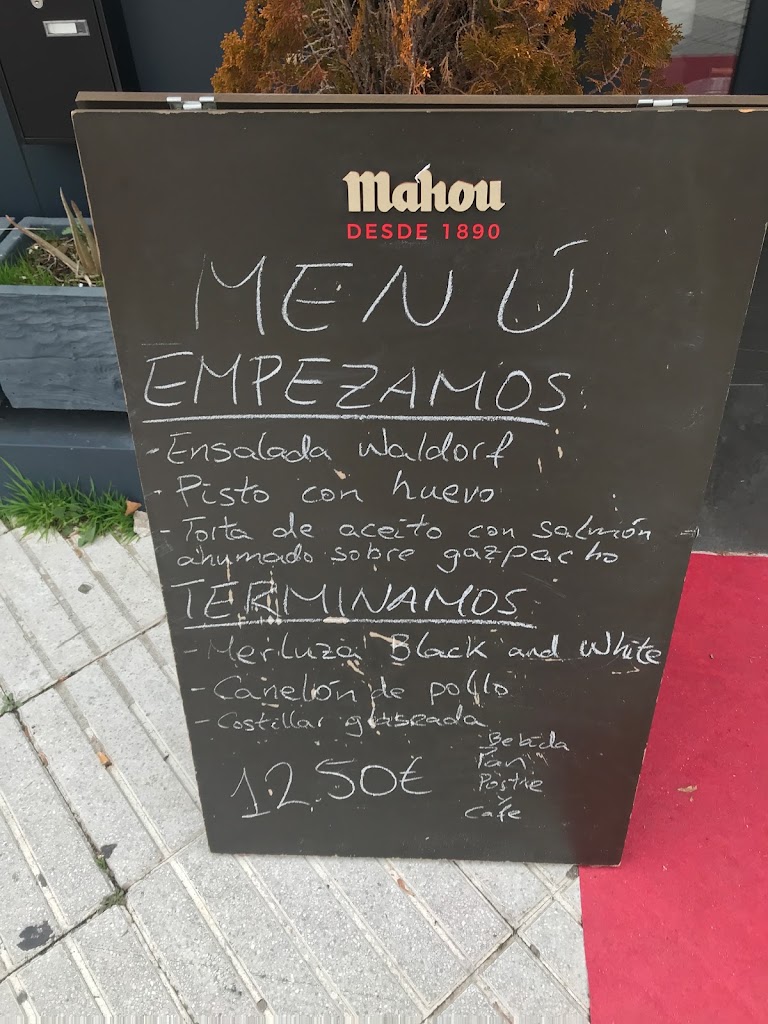 Mahou
DESDE 1890
MENÚ
EMPEZAMOS
- Ensalada Waldorf
- Pisto con huevo
- Torta de aceito con salmón
ahumado sobre gazpacho
TERMINAMOS
- Merluza Black and White
- Canelón de pollo
- Costillar glaseada
12,50€
Bebida
Pan
Postre
y
Cafe